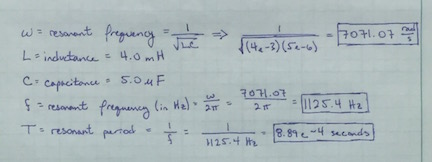 ω = resonant frequency = 1/√LC ⇒ 1/√(4e-3)(5e-6) = 7071.07 rad/s
L = inductance = 4.0 mH
C = capacitance = 5.0 μF
f = resonant frequency (in Hz) = ω/2π = 7071.07/2π = 1125.4 Hz
T = resonant period = 1/f = 1/1125.4 Hz = 8.89e-4 seconds